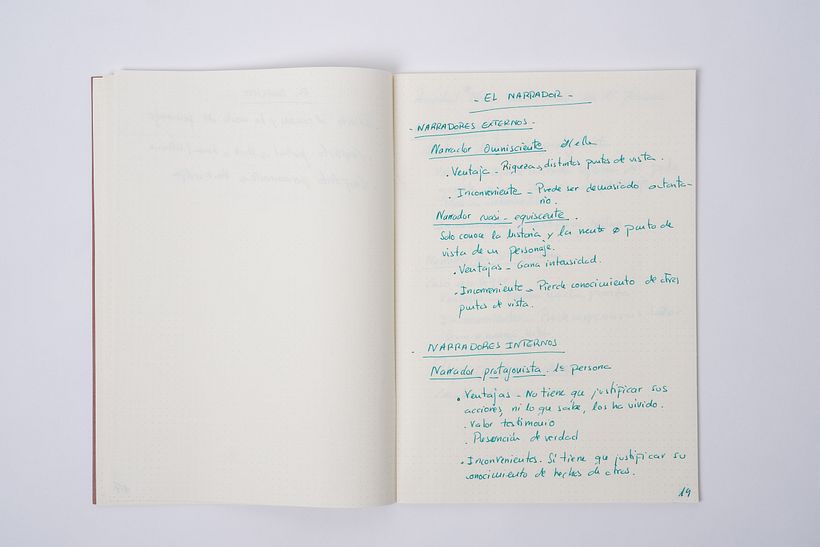 - EL NARRADOR -
- NARRADORES EXTERNOS -
Narrador Omnisciente él/ella
. Ventaja - Riqueza, distintos puntos de vista.
. Inconveniente - Puede ser demasiado
rio.
Narrador cuasi-equiscente.
Solo conoce la historia y la mente o punto de
vista de un personaje.
. Ventajas - Gana intensidad.
. Inconveniente - Pierde conocimiento de otros
puntos de vista.
. NARRADORES INTERNOS
Narrador protagonista. persona
. Ventajas - No tiene que justificar sus
acciones, ni lo que sabe, los ha vivido.
. Valor testimonio
. de verdad
. Inconvenientes. Sí tiene que justificar su
conocimiento de hechos de otros.
19